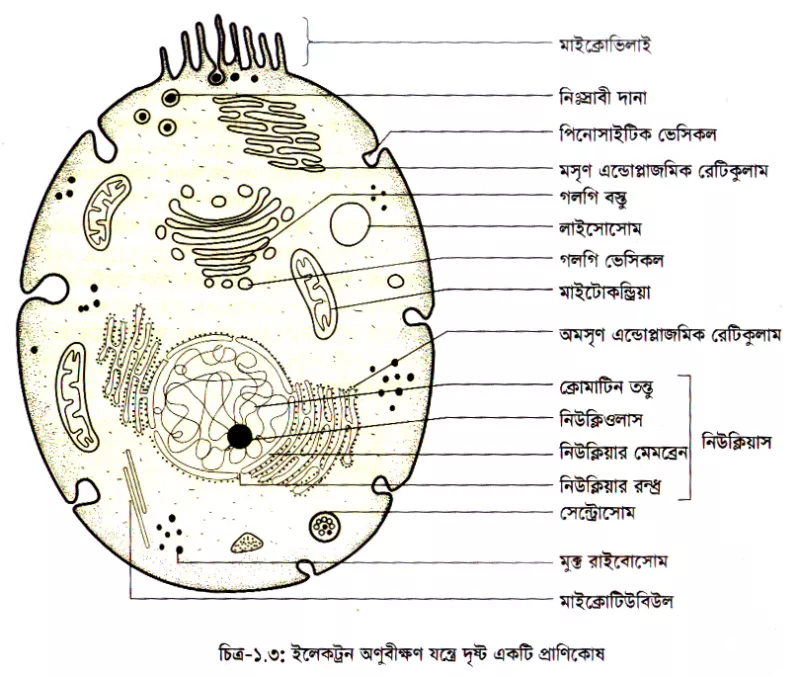 মাইক্রোভিলাই
নিঃস্রাবী দানা
পিনোসাইটিক ভেসিকল
মসৃণ এন্ডোপ্লাজমিক রেটিকুলাম
গলগি বস্তু
লাইসোসোম
গলগি ভেসিকল
মাইটোকন্ড্রিয়া
অমসৃণ এন্ডোপ্লাজমিক রেটিকুলাম
ক্রোমাটিন তন্তু
নিউক্লিওলাস
নিউক্লিয়াস
নিউক্লিয়ার মেমব্রেন
নিউক্লিয়ার রন্ধ্র
সেন্ট্রোসোম
মুক্ত রাইবোসোম
মাইক্রোটিউবিউল
চিত্র-১.৩: ইলেকট্রন অণুবীক্ষণ যন্ত্রে দৃষ্ট একটি প্রাণিকোষ